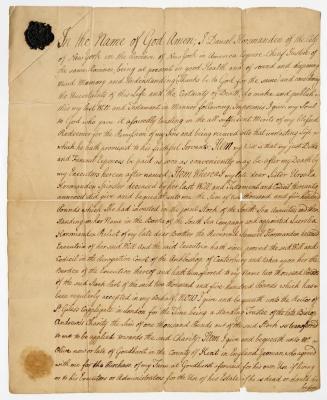 In the Name of God Amen, I Daniel Horsmanden of the City
of New York in the Province of New York in America Esquire Chief Justice of
the same Province being at present in good Health and of sound and disposing
mind Memory and Understanding Thanks be to God for the same and considering
the Uncertainty of this Life and the Certainty of Death do make and publish
this my last Will and Testament in Manner following Imprimis I give my Soul
to God who gave it assuredly trusting in the all sufficient Merits of my blessed
Redeemer for the Remission of my Sins and being received into that everlasting Life
which he hath promised to his faithful Servants Item my Will is that my just Debts
and Funeral Expences be paid as soon as conveniently may be after my Death by
my Executors herein after named Item Whereas my late dear Sister Ursula
Horsmanden Spinster deceased by her last Will and Testament and Codicil thereunto
annexed did give and bequeath unto me the Sum of two thousand and five hundred
Pounds which She had in the joint Stock of the South Sea Annuities and
Standing in her Name in the Books of the South Sea Company and appointed
Horsmanden Relict of my late dear Brother the Reverend Samuel Horsmanden
Executrix of her said Will And the said Executrix hath since proved the said Will and
Codicil in the Prerogative Court of the Archbishop of Canterbury and taken upon her the
Burden of the Execution thereof and hath transferred to my Name two thousand
of the said Stock Part of the said two thousand and five hundred Pounds which has
been regularly accepted in my Behalf NOW I give and bequeath unto the Rector of
St Giles's Cripplegate in London for the Time being a Trustee of the late Bishop
Andrews's Charity the Sum of one thousand Pounds out of the said Stock
to me to be applied towards the said Charity Item I give and bequeath unto Mr
Olive now or late of Goudhurst in the County of Kent in England Yeoman who agreed
with me for the Purchase of my Farm at Goudhurst aforesaid for his own Use if living
or to his Executors or Administrators for the Use of his Estate if he is dead